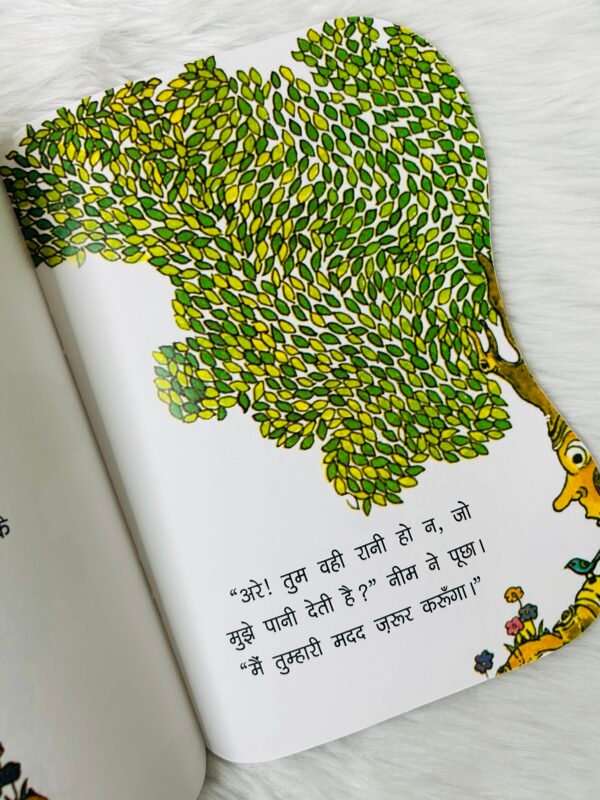 के
“अरे! तुम वही रानी हो न, जो
मुझे पानी देती है?” नीम ने पूछा।
“मैं तुम्हारी मदद ज़रूर करूँगा।”